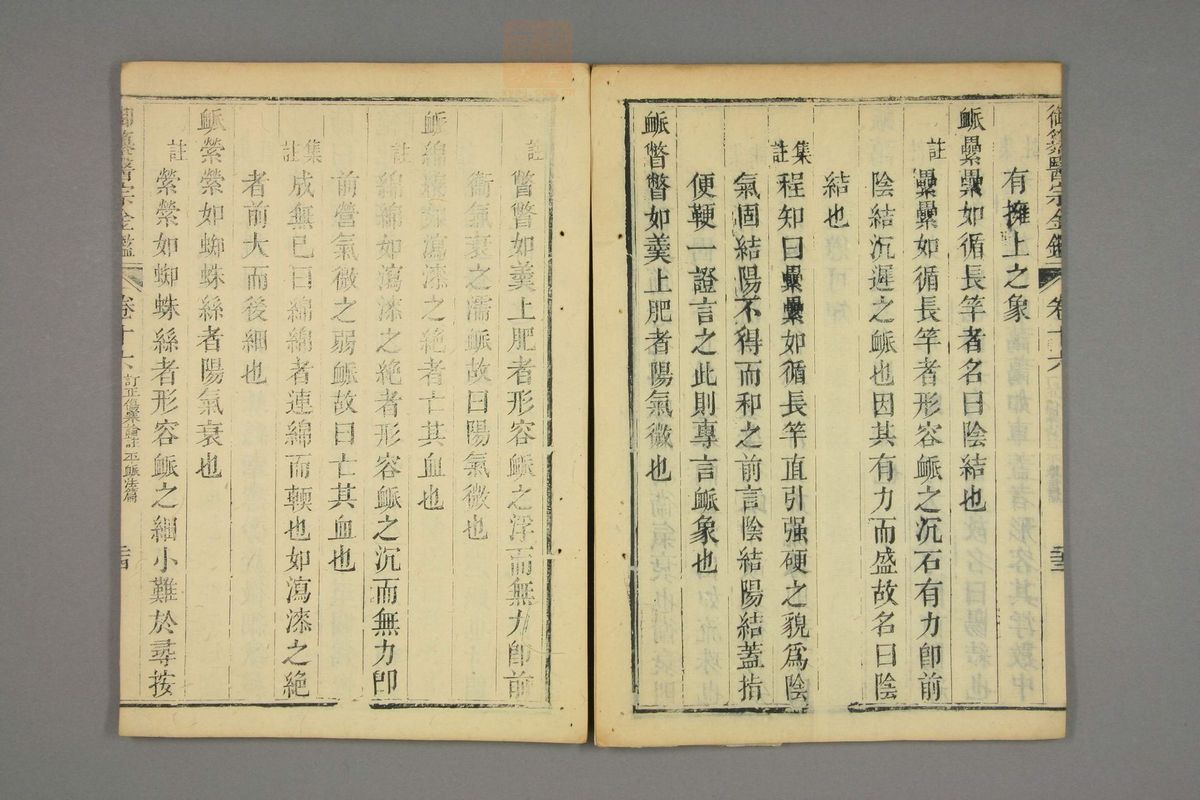 御纂醫宗金鑑 卷十六
有擁上之象
脈纍纍如循長竿者名曰陰結也
註 纍纍如循長竿者形容脈之沉石有力卽前
陰結沉遲之脈也因其有力而盛故名曰陰
結也
集註 程知曰纍纍如循長竿直引强硬之貌爲陰
氣固結陽不得而和之前言陰結陽結蓋指
便鞕一證言之此則專言脈象也
脈瞥瞥如羹上肥者陽氣微也
註 瞥瞥如羹上肥者形容脈之浮而無力卽前
衛氣衰之濡脈故曰陽氣微也
脈綿綿如瀉漆之絶者亡其血也
註 綿綿如瀉漆之絶者形容脈之沉而無力卽
前營氣微之弱脈故曰亡其血也
集註 成無已曰綿綿者連綿而輭也如瀉漆之絶
者前大而後細也
脈縈縈如蜘蛛絲者陽氣衰也
註 縈縈如蜘蛛絲者形容脈之細小難於尋按
御纂醫宗金鑑 卷十六 訂正傷寒論註 平脈法篇